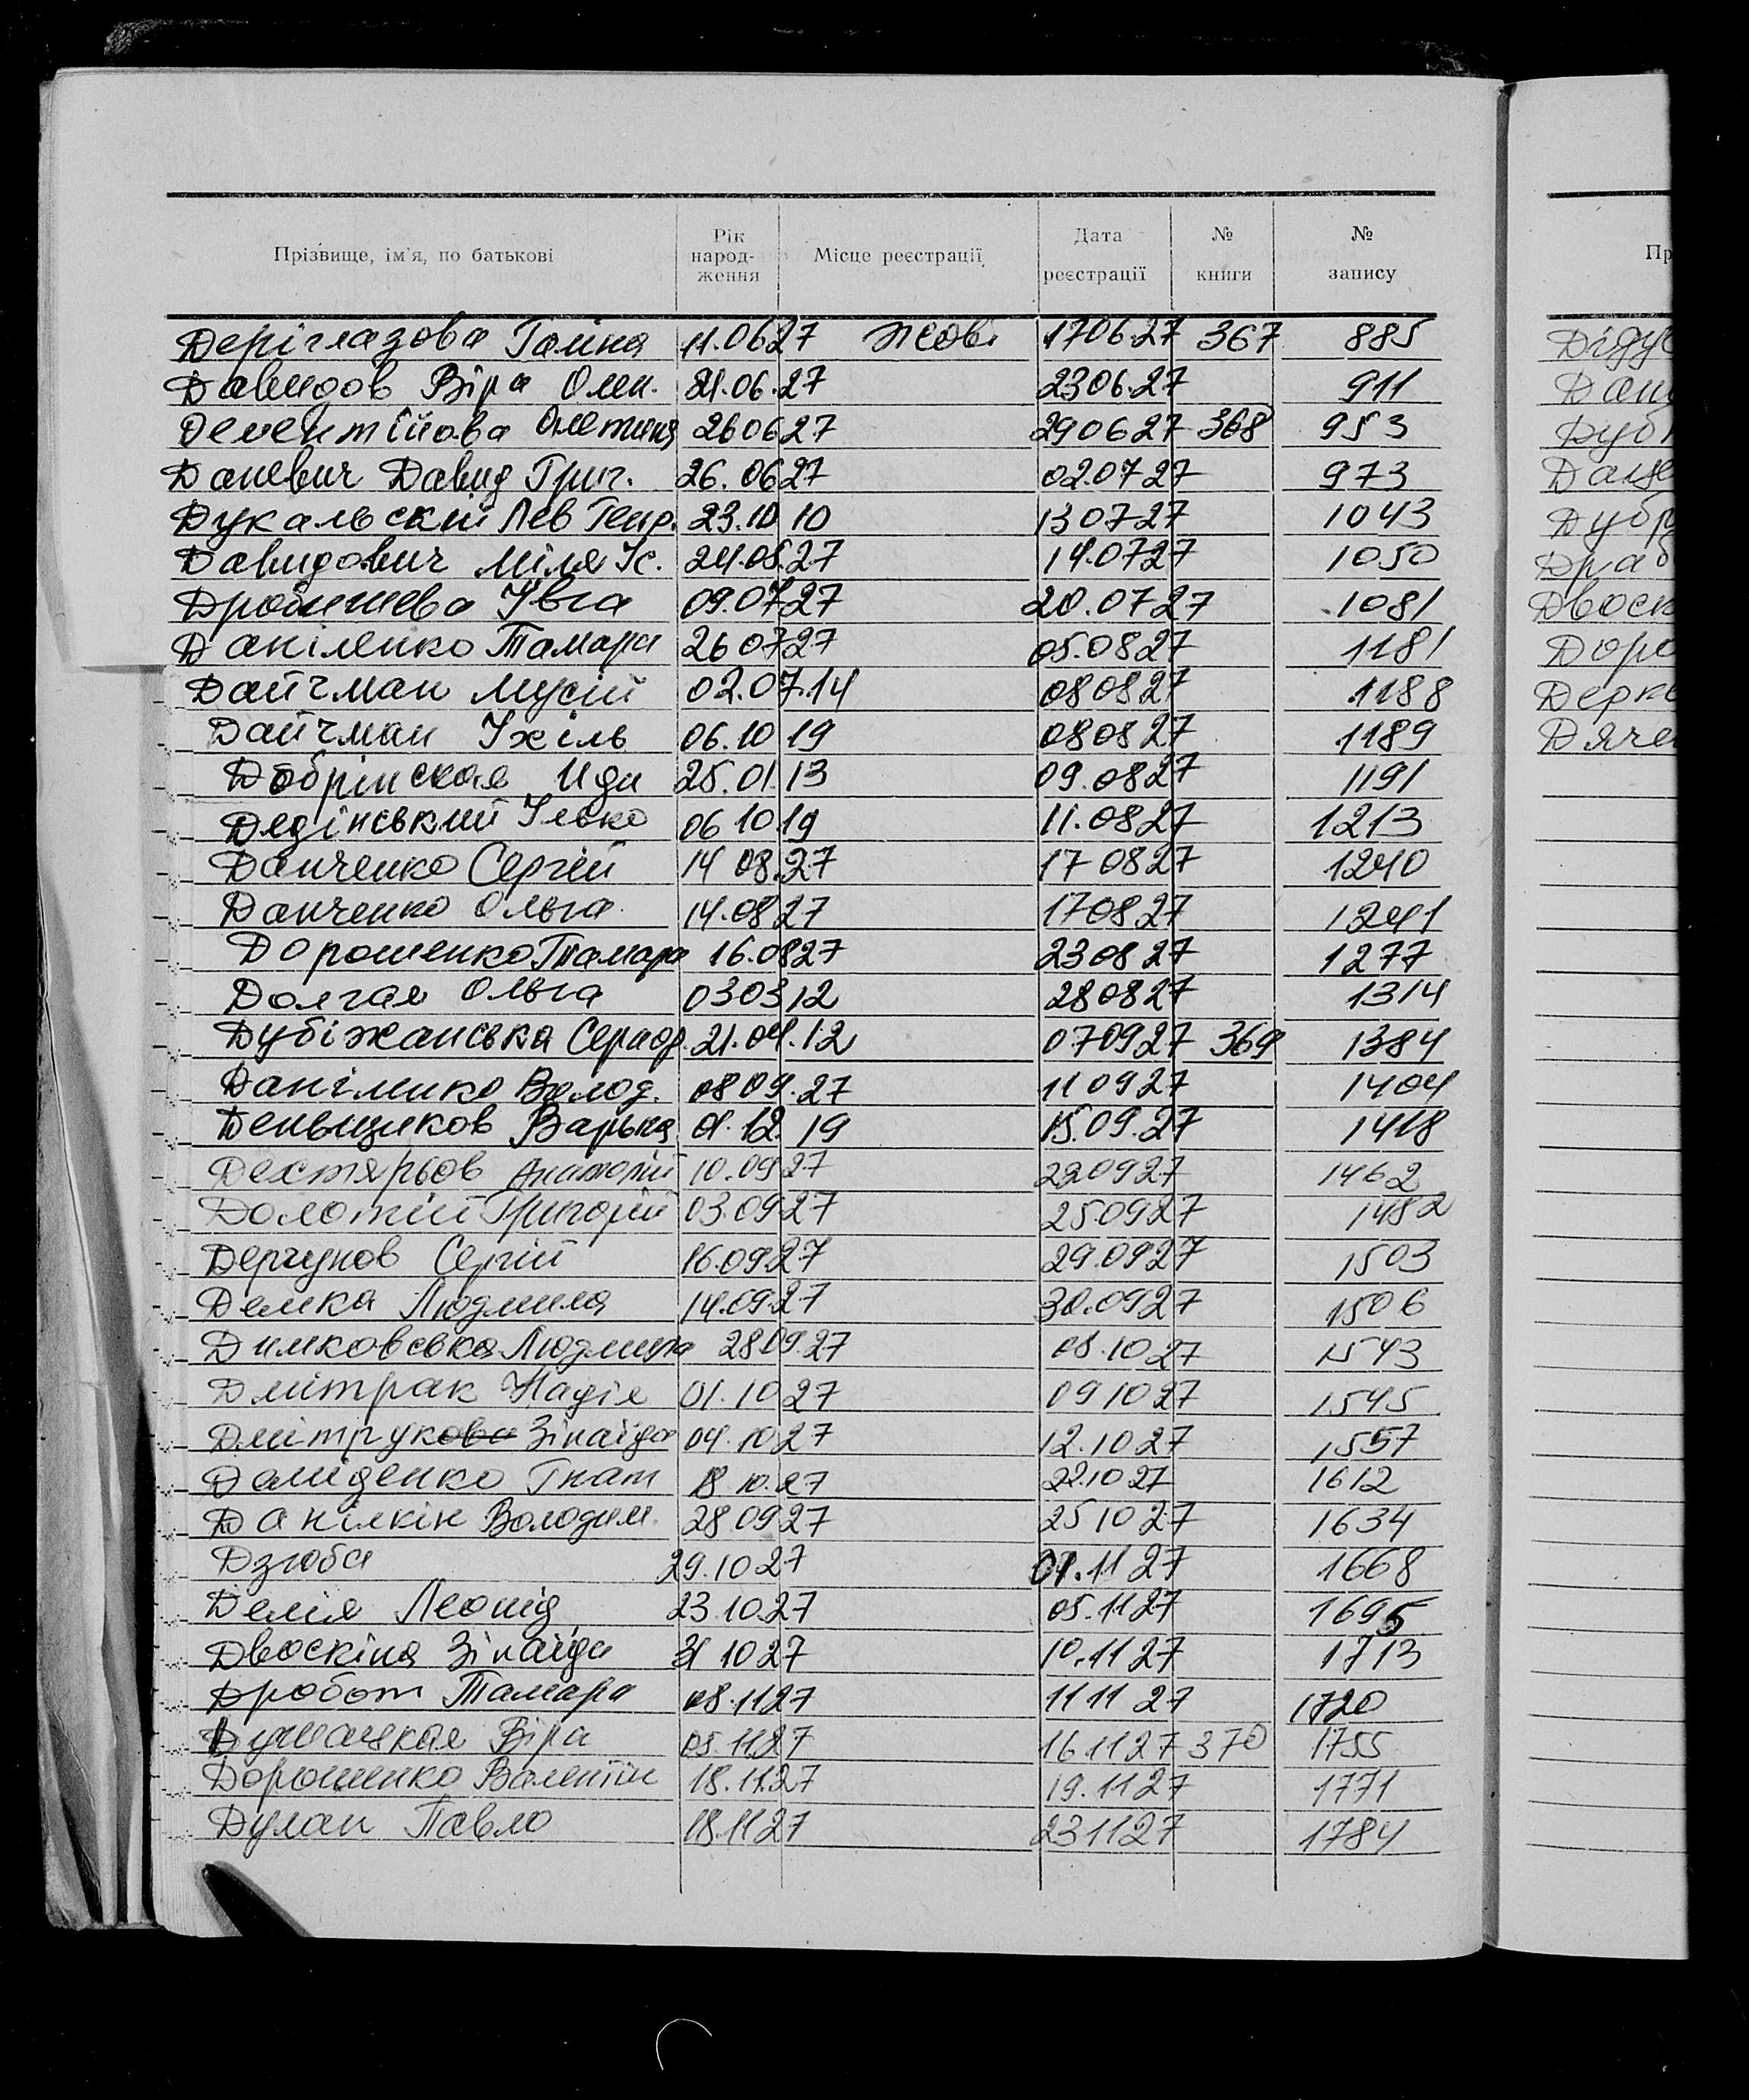 Прізвище, ім'я, по батькові Рік народ-ження Місце реєстрації Дата реєстрації № книги № запису
Деріглазова Галина 11.06 27 Жовт 17 06 27 367 885
Давидов Віра Олек. 21.06.27 23 06.27 911
26 06 27 29 06 27 368 953
Даневич Давид Григ. 26.06 27 02.07 27 973
Дукальский Лев Генр. 23.10 10 13 07 27 1043
Давидович Міля Іс. 24.05.27 14.07 27 1050
Івга 09.07 27 20.07 27 1081
Даніленко Тамара 26 07 27 05.08 27 1181
Дайчман Мусій 02.07.14 08 08 27 1188
Дайчман Іхіль 06.10 19 08 08 27 1189
Добрінская Ида 25.01.13 09.08 27 1191
06 10 19 11.08 27 1213
Данченко Сергій 14 08.27 17 08 27 1240
Данченко Ольга 14.08 27 17 08 27 1241
Дорошенко Тамара 16.08 27 23 08 27 1277
Долгая Ольга 03 03 12 28 08 27 1314
Дубіжанська 21.04.12 07 09 27 369 1384
Даніленко Волод. 08 09.27 11 09 27 1404
Деньщиков Варька 01.12.19 15.09.27 1418
Дехтярьов Анатолій 10.09 27 22 09 27 1462
Долотій Григорій 03.09 27 25 09 27 1482
Дергунов Сергій 16.09 27 29.09 27 1503
Демка Людмила 14.09.27 30.09 27 1506
Димковська Людмила 28 09.27 08.10 27 1543
Дмітрак Надія 01.10 27 09 10 27 1545
Дмітрукова Зінаїда 04.10 27 12.10 27 1557
Деміденко Гнат 18 10.27 22.10 27 1612
Данілкін Володим. 28 09 27 25 10 27 1634
Дзюба 29.10 27 01.11 27 1668
Делія Леонід 23 10.27 05.11 27 1695
Двоскіна Зінаїда 31 10 27 10.11 27 1713
Дробот Тамара 08.11 27 11 11 27 1720
Віра 05.11 27 16 11 27 370 1755
Дорошенко Валентін 18.11.27 19.11 27 1771
Дулан Павло 18.11 27 23 11 27 1784